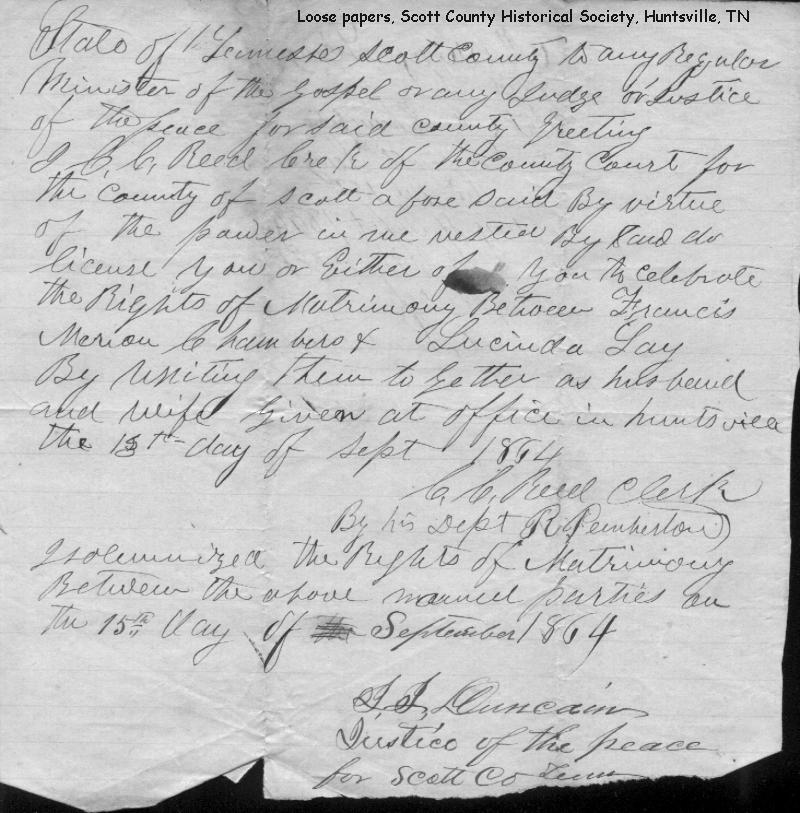 Loose papers, Scott County Historical Society, Huntsville, TN
State of Tennessee Scott County to any Regular
Minister of the Gospel or any Judge or Justice
of the peace for said county Greeting
I C. C. Reed Clerk of the County Court for
the County of Scott afore said By virtue
of the power in me vested By Law do
license you or Either of you to celebrate
the Rights of Matrimony Between Francis
Merion Chambers & Lucinda Lay
By uniting them to Gether as husband
and wife Given at office in huntsville
the 15th day of Sept 1864
C. C. Reed Clerk
By his Dept R Pemberton
I solemnized the Rights of Matrimony
Between the above named parties on
the 15th day of September 1864
Duncain
Justice of the peace
for Scott Co Tenn